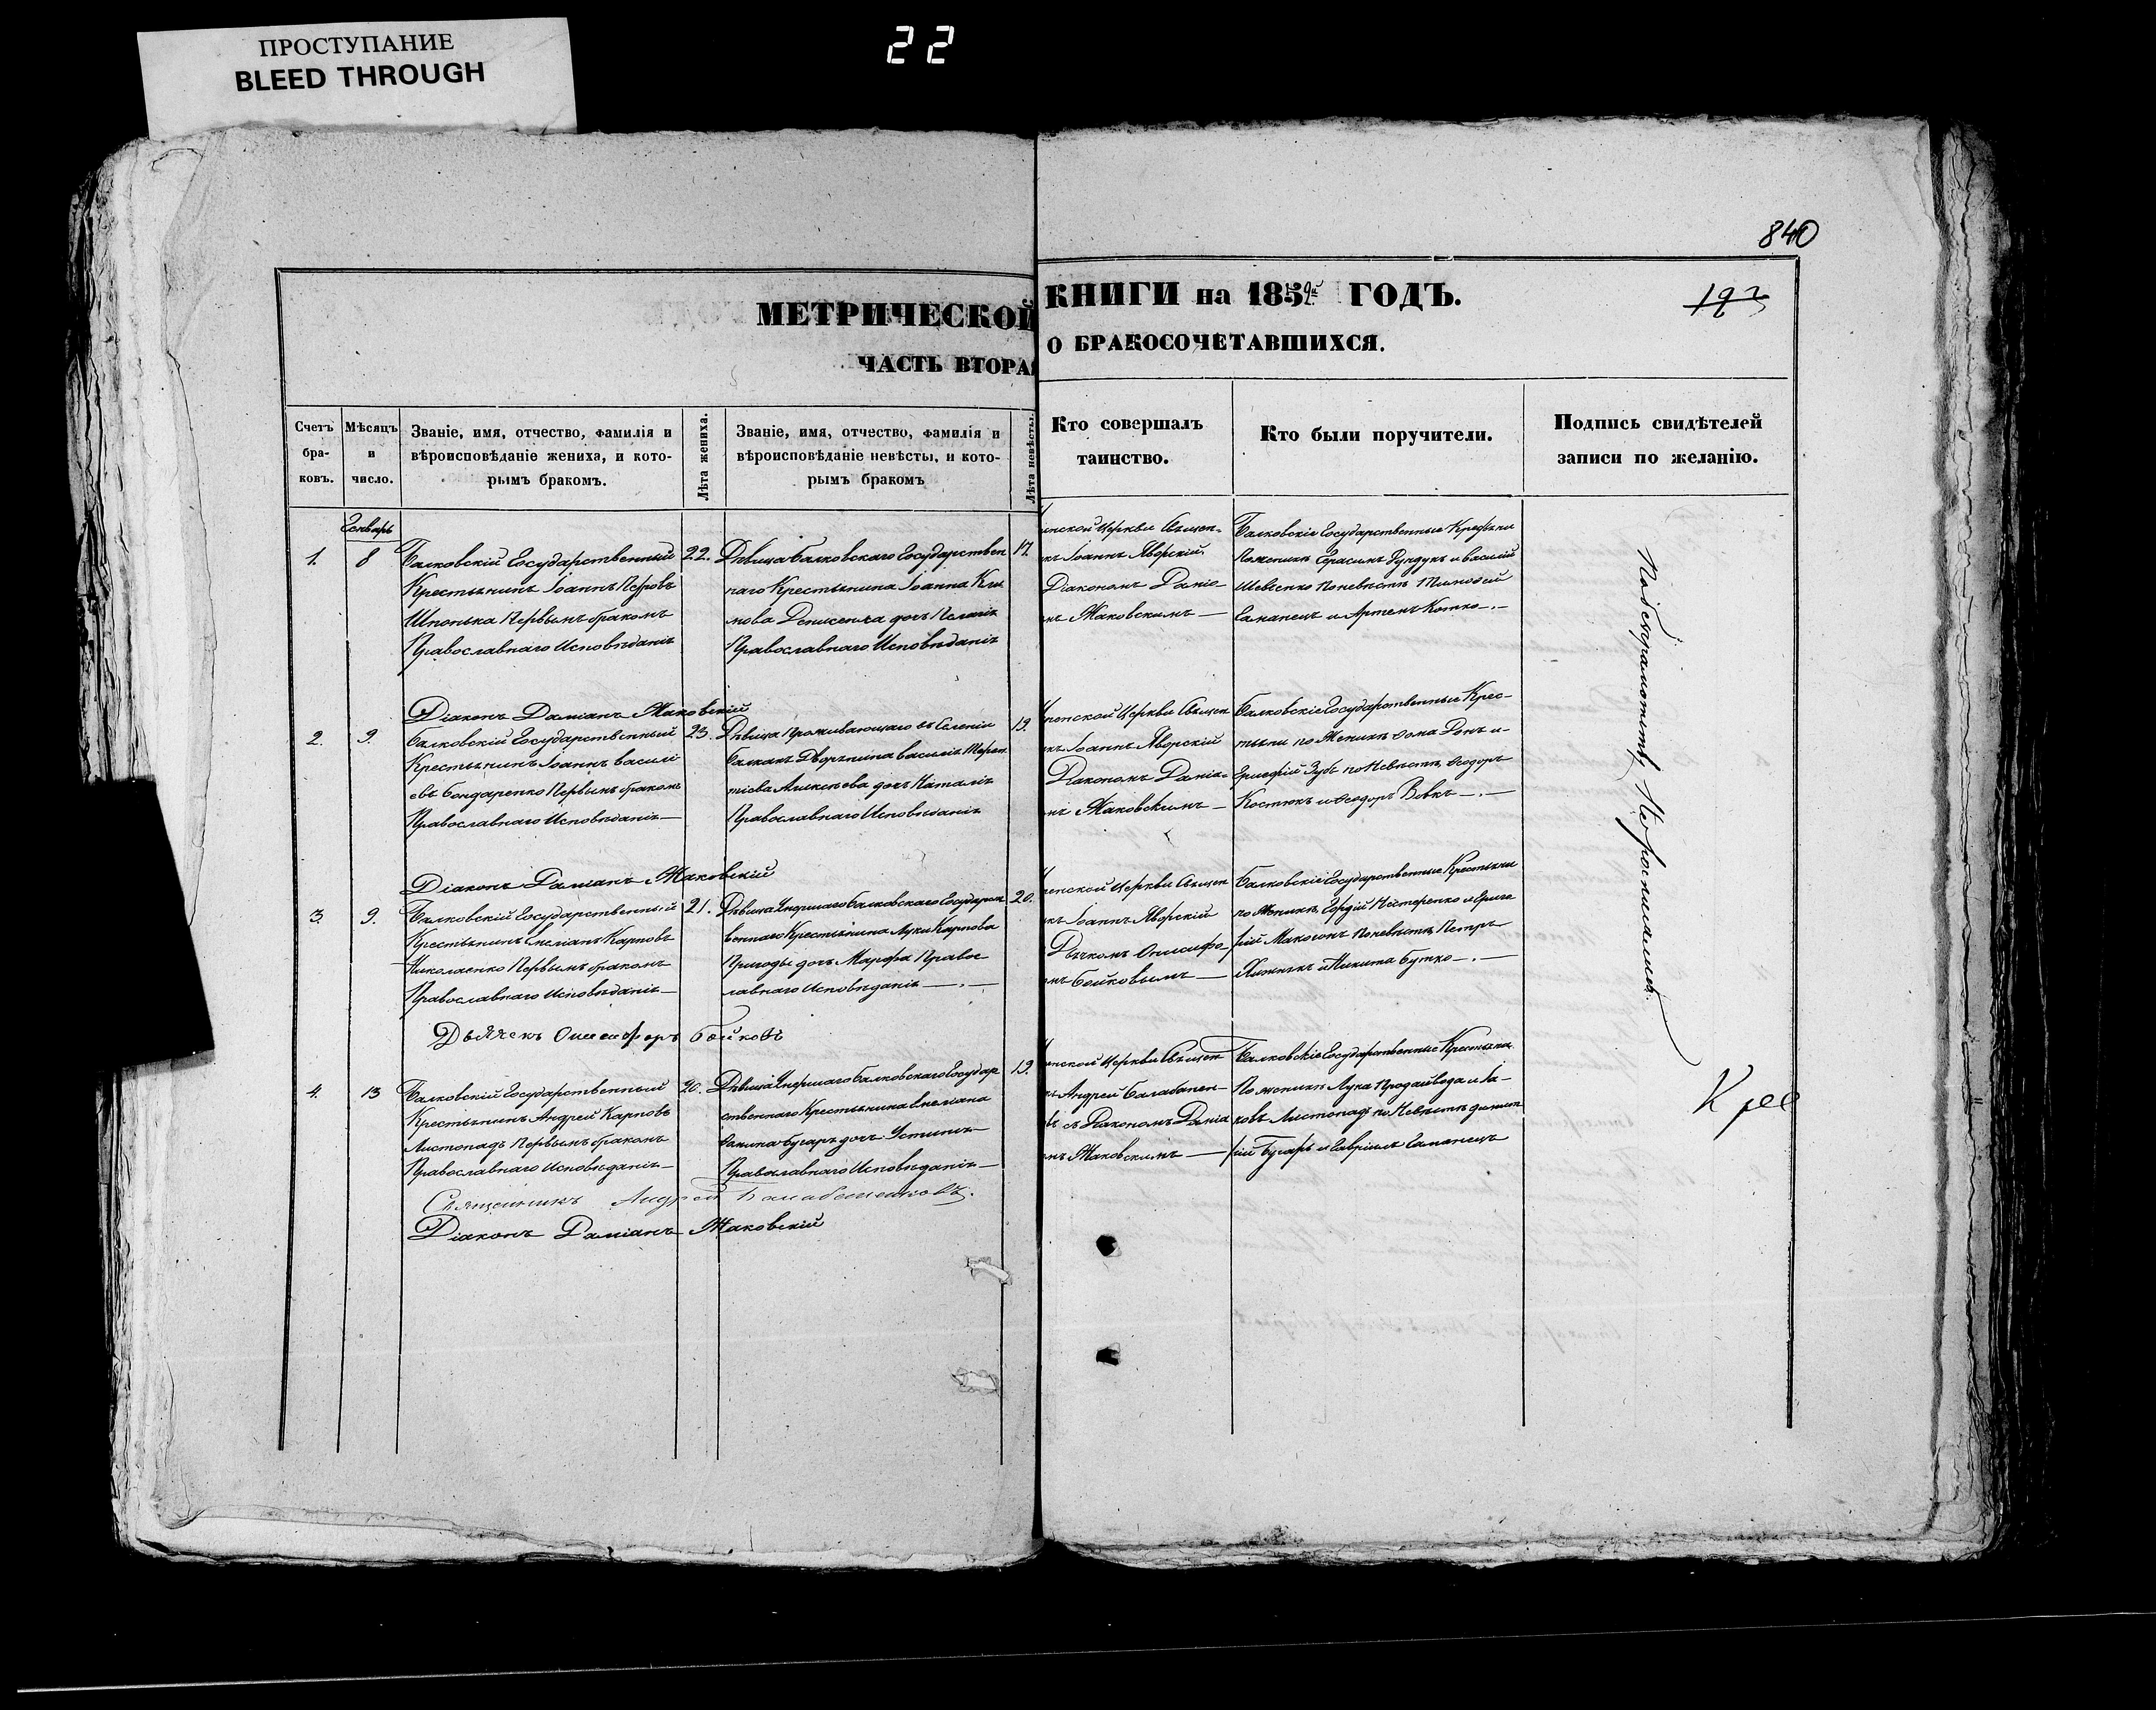 ПРОСТУПАНИЕ
BLEED THROUGH
22
840
МЕТРИЧЕСКОЙ КНИГИ на 185 ГОДЪ.
ЧАСТЬ ВТОРАЯ О БРАКОСОЧЕТАВШИХСЯ.
Счетъ бра-ковъ.
Мѣсяцъ и число.
Званіе, имя, отчество, фамилія и
вѣроисповѣданіе жениха, и кото-
рымъ бракомъ.
Лѣта жениха.
Званіе, имя, отчество, фамилія и
вѣроисповѣданіе невѣсты, и кото-
рымъ бракомъ
Лѣта невѣсты.
Кто совершалъ
таинство.
Кто были поручители.
Подпись свидѣтелей
записи по желанію.
1.
8
Балковскій Государственный
Крестьянинъ Іоаннъ Петровъ
Шпонька Первымъ бракомъ
Православнаго Исповѣданія
22.
Дѣвица Балковскаго Государствен
наго Крестьянина Іоанна Кли
мова Денисенка дочь Пелагія
Православнаго Исповѣданія
17.
Іоаннъ Яворскій
Діакономъ
Маковскимъ —
Балковскіе Государственные
Герасимъ Рундукъ и Василій
Шевченко Поневѣстѣ Тимофей
Саманецъ и Артемъ Котко —.—
Діаконъ Даміанъ Маковскій
2.
9.
Балковскій Государственный
Крестьянинъ Іоаннъ Василі
евъ Бондаренко Первымъ бракомъ
Православнаго Исповѣданія —
23.
Дѣвица Проживающаго въ Селеніи
Балкахъ Дворянина Василія Терен
тіева Алексѣева дочь Наталія
Православнаго Исповѣданія
19.
Іоаннъ Яворскій
Діакономъ
Маковскимъ —
Балковскіе Государственные Крес-
тьяни по Женихѣ
Зубъ по Невѣстѣ Ѳеодоръ
Костюкъ и Ѳеодоръ Вовкъ —.—
Діаконъ Даміанъ Маковскій
3.
9.
Балковскій Государственный
Крестьянинъ Емеліанъ Карповъ
Николаенко Первымъ бракомъ
Православнаго Исповѣданія —
21.
Дѣвица Умершаго Балковскаго Государст
веннаго Крестьянина Луки Карпова
Пригоды дочь Марфа Правос
лавнаго Исповѣданія —.—
20.
Іоаннъ Яворскій
Дьячкомъ Онисифо
Бойковымъ —
Балковскіе Государственные Крестьяни
по Женихѣ Гордій Нестеренко и Григо
рій Макогонъ Поневѣстѣ Петръ
и Никита Бутко —.—
Дьячекъ Онисифоръ Бойковъ
4.
13
Балковскій Государственный
Крестьянинъ Андрей Карповъ
Листопадъ Первымъ бракомъ
Православнаго Исповѣданія —
20.
Дѣвица Умершаго Балковскаго Государ
ственнаго Крестьянина Емеліана
дочь Устинія —
Православнаго Исповѣданія —
19.
Андрей Балабанен
съ Діакономъ
Маковскимъ —
Балковскіе Государственные Крестьяни
По женихѣ Лука Продайвода и Іа-
ковъ Листопадъ по Невѣстѣ Димит
рій Бугаръ и Гавріилъ Саманецъ
Священникъ Андрей Балабаненковъ.
Діаконъ Даміанъ Маковскій